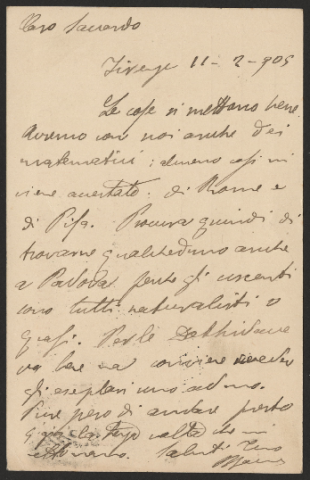 Caro Saccardo
Firenze 11-2-905
Le cose si mettono bene
Avremo con noi anche dei
matematici: almeno così mi
viene accertato: di Roma e
di Pisa. Procura quindi di
trovarne qualcheduno anche
a Padova perche gli uscenti
sono tutti naturalisti o
quasi. Per le
va bene ma conviene
gli esemplari uno ad uno.
però di andare presto
volta che mi
Saluti Tuo